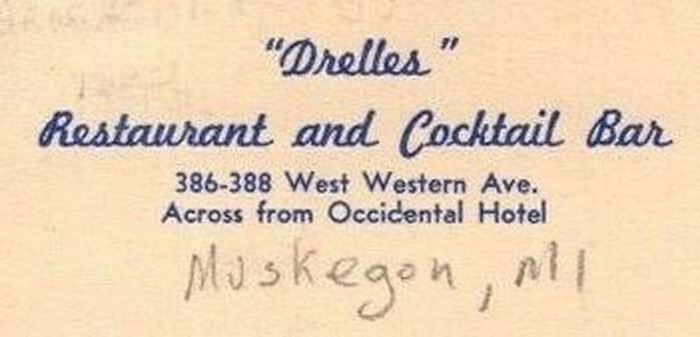 "Drelles"
Restaurant and Cocktail Bar
386-388 West Western Ave.
Across from Occidental Hotel
Muskegon, MI